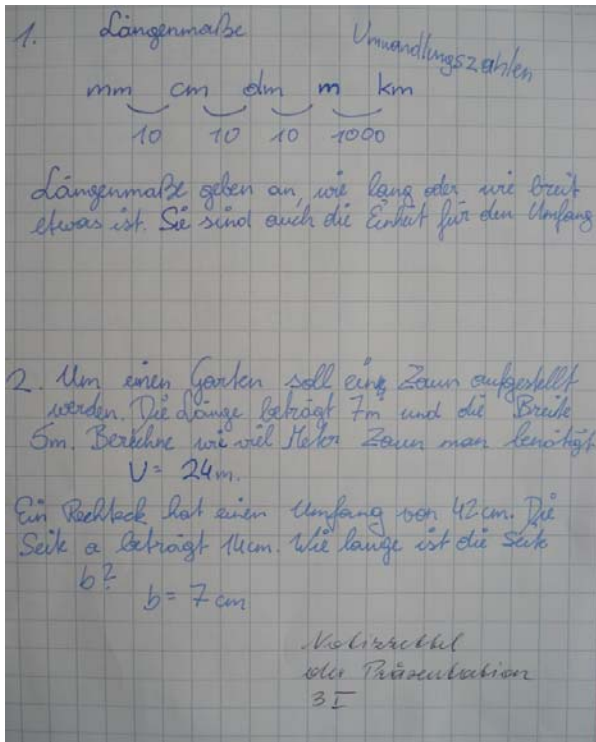 1. Längenmaße Umwandlungszahlen
mm cm dm m km
10 10 10 1000
Längenmaße geben an, wie lang oder wie breit
etwas ist. Sie sind auch die Einheit für den Umfang
2. Um einen Garten soll ein Zaun aufgestellt
werden. Die Länge beträgt 7m und die Breite
5m. Berechne wie viel Meter Zaun man benötigt
U = 24m.
Ein Rechteck hat einen Umfang von 42cm. Die
Seite a beträgt 14cm. Wie lange ist die Seite
b?
b = 7 cm
Notizzettel
der Präsentation
3 I